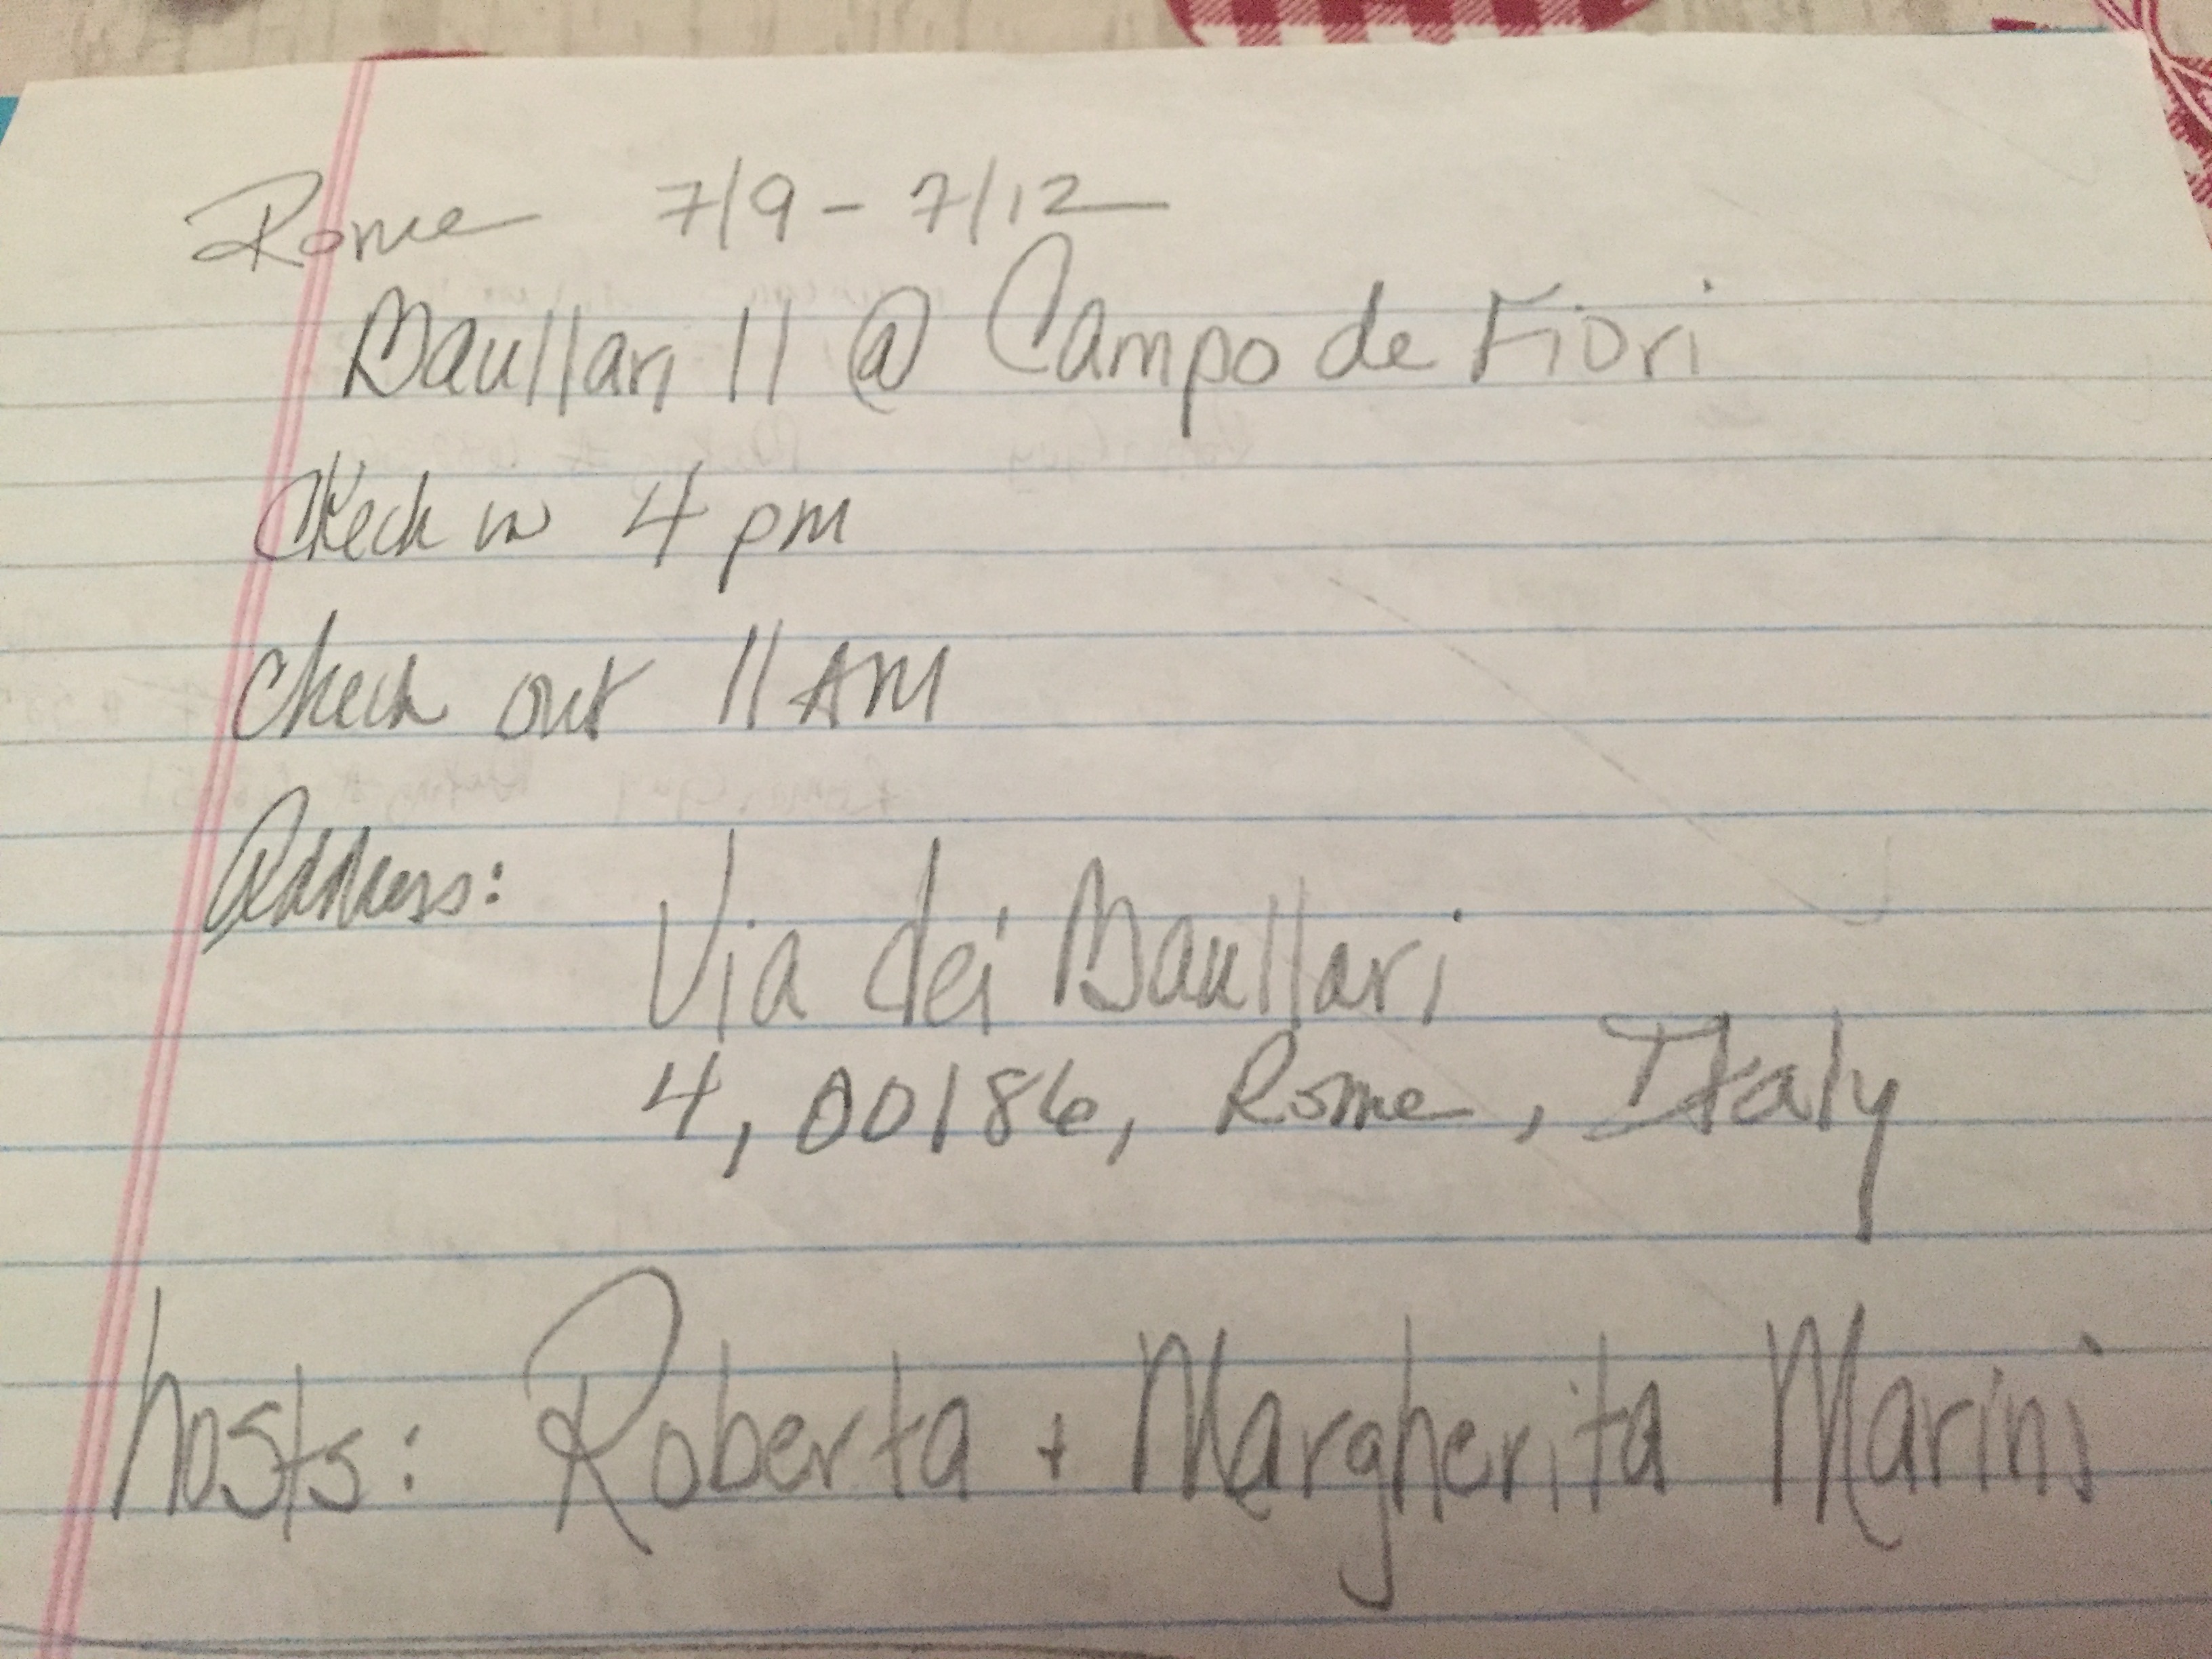 Rome 7/9 - 7/12
Baullari 11 @ Campo de Fiori
Check in 4 pm
Check out 11 AM
Address: Via dei Baullari
4, 00186, Rome, Italy
hosts: Roberta + Margherita Marini